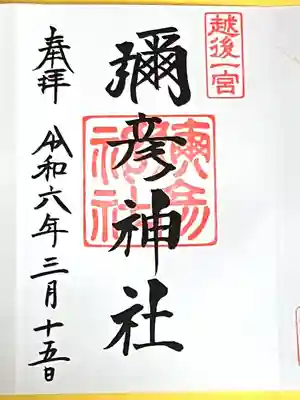 越後一宮
彌彦神社
奉拝
令和六年三月十五日